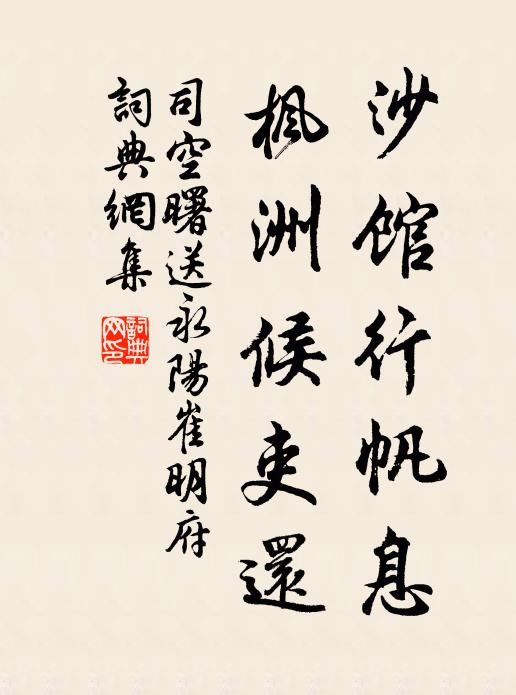 沙館行帆息
楓洲候吏還
司空曙送永陽崔明府
詞典網集
詞典网印